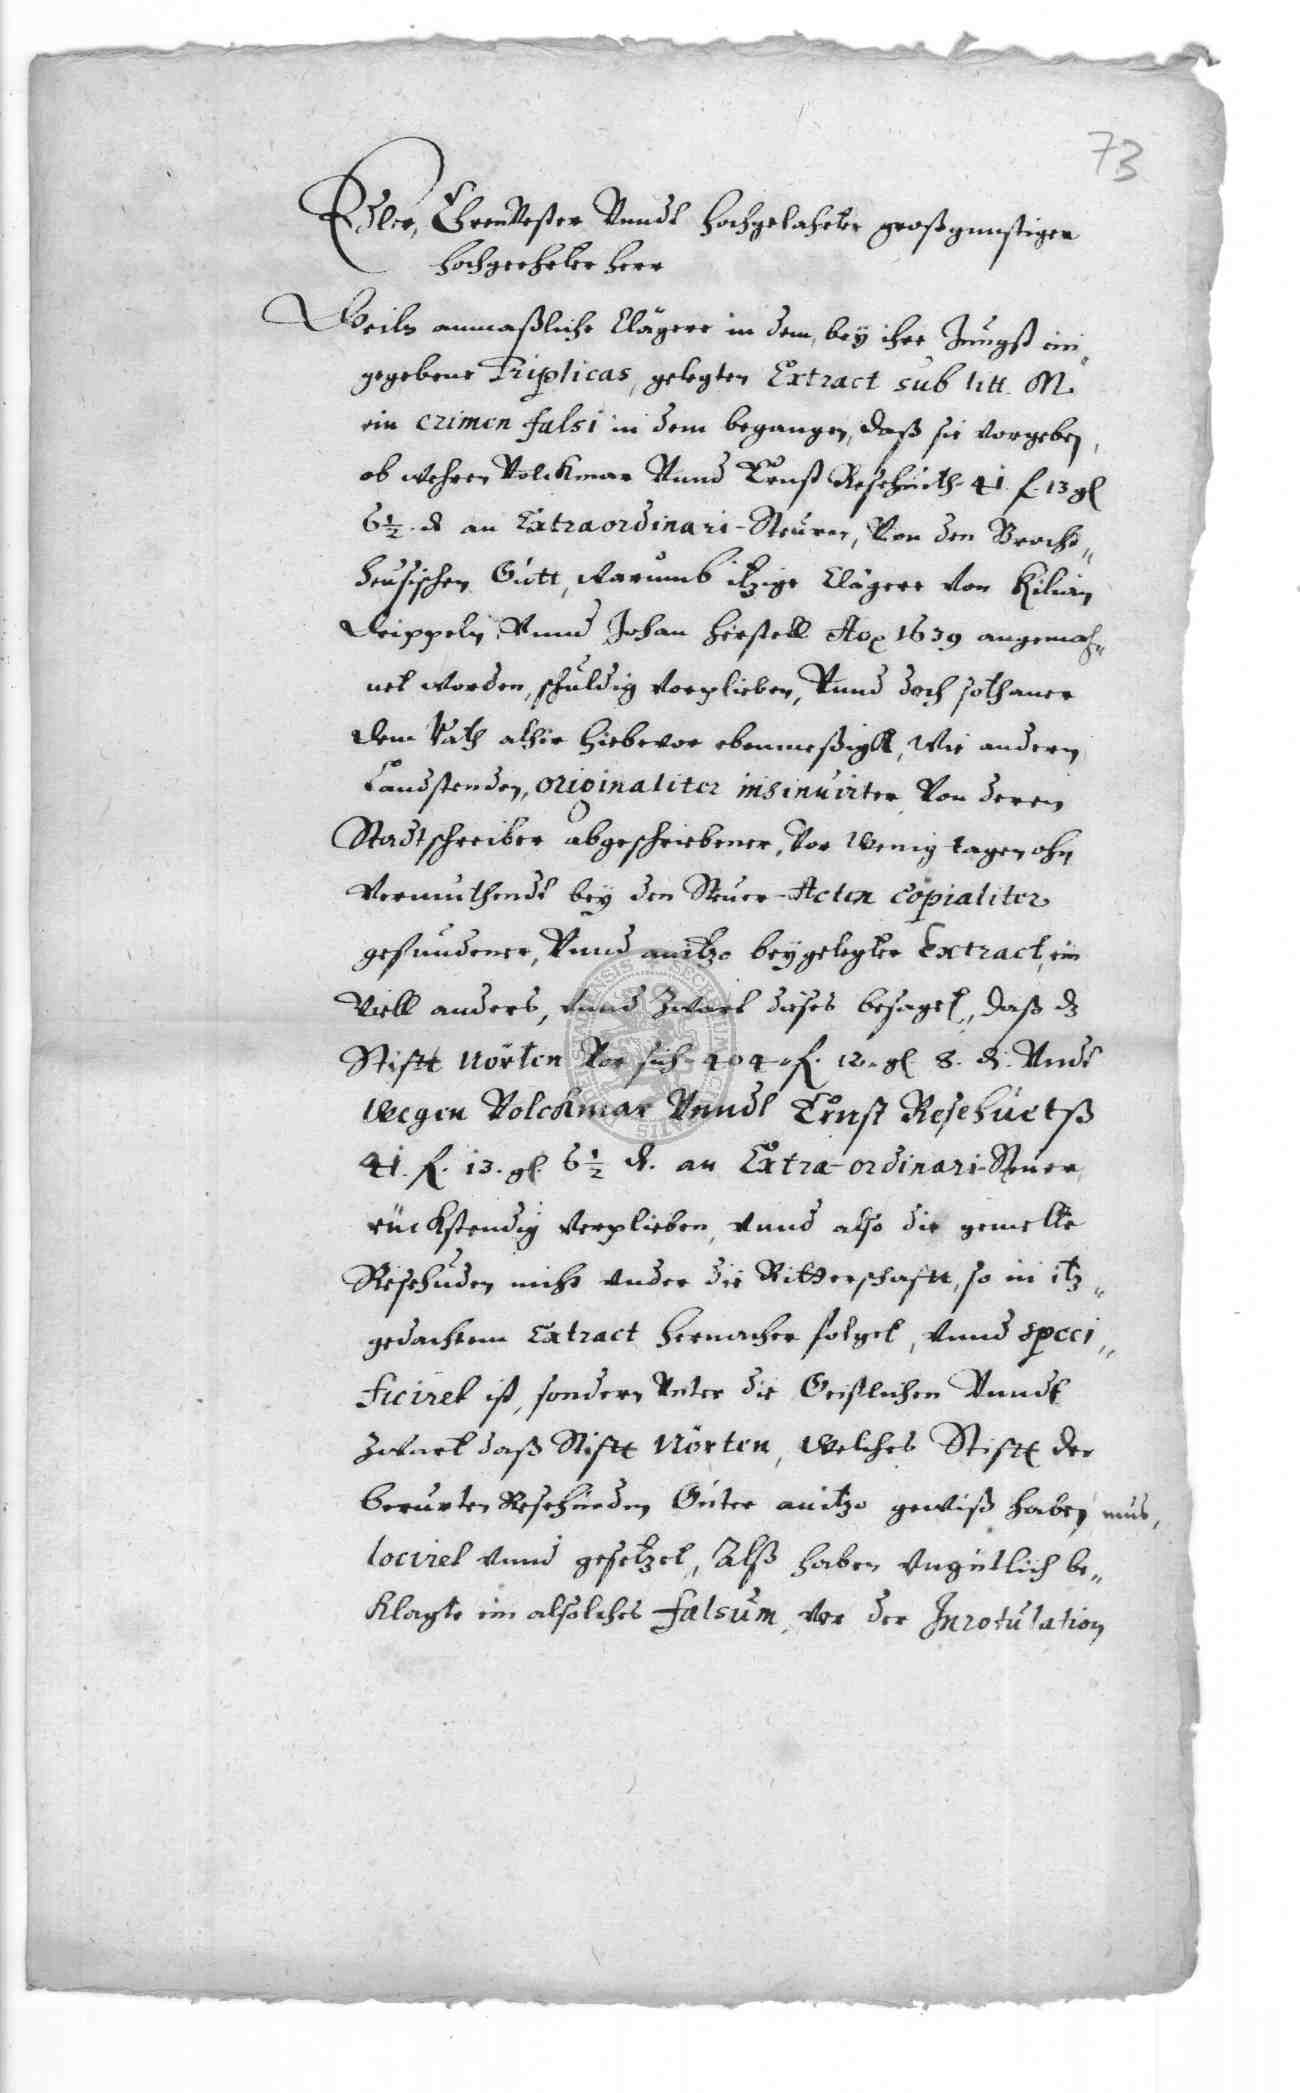 73
Edler, Ehrenvester Vnndt hochgelahrter großgunstiger
hochgeehrter herr
Weiln anmaßliche Clägere in dem, bey ihre Jungst ein„
gegebene Triplicas, gelegten Extract sub litt. M.
ein crimen falsi in dem begangen, daß sie vorgeben,
ob wehren Volckmar Vnnd Ernst Resehuth 41 f. 13 gl
6½ d an Extraordinari-Steuren, Von den
heusischen Gutt, warumb itzige Clägere von Kilian
Vnnd Johan Ao 1639 angemah„
net worden, schuldig verplieben, Vnnd doch sothaner
dem Rath alhie hiebevor ebenmeßigk, wie andern
Landstenden, originaliter insinuirter Von deren
Stadtschreiber abgeschriebener, vor wenig tagen ohn
vermuthendt bey den Steuer-Acten copialiter
gefundener, Vnnd anitzo beygelegter Extract, ein
viell anders, vnnd zwart dieses besaget, daß dz
Stifft Nörten Vor sich 404 f. 12 gl 8. d. Vndt
wegen Volckmar Vnndt Ernst Resehuetß
41. f. 13. gl. 6½ d. an Extra-ordinari-Steuer
rückstendig verplieben, vnnd also die gemelte
Resehuden nicht vnder die Ritterschafft, so in itz„
gedachtem Extract hernacher folget, vnnd speci„
ficiret ist, sondern Vnter die Geistlichen Vnndt
zwart daß Stifft Nörten, welches Stifft der
berurten Resehueden Güter anitzo gewiß haben mus,
lociret vnnd gesetzet, Alß haben vngütlich be„
klagte ein alsolches falsum, vor der Inrotulation